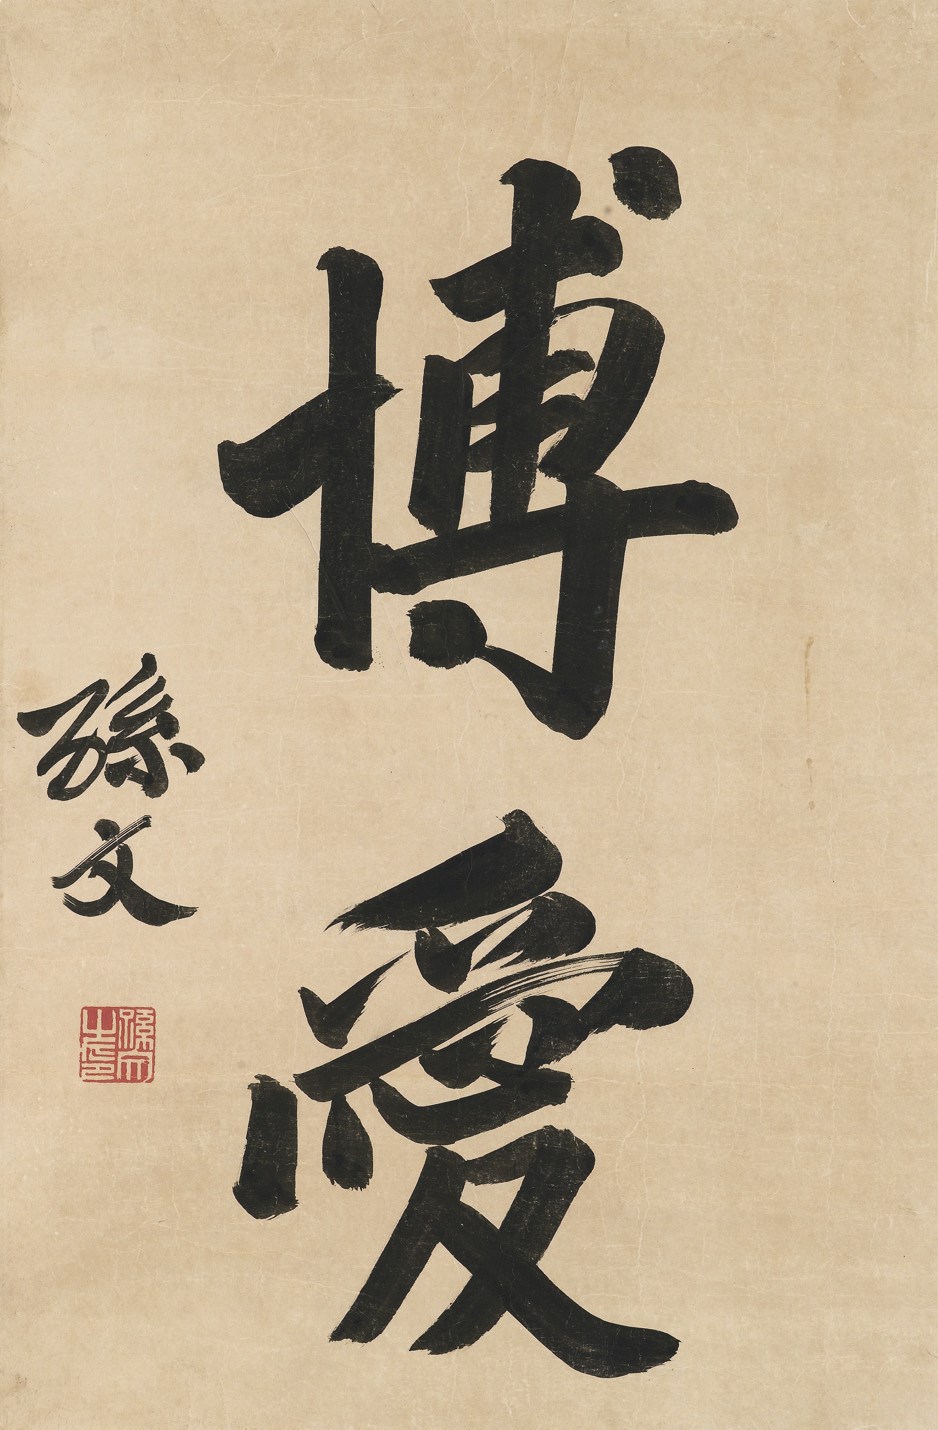 博愛
孫文
孫文之印